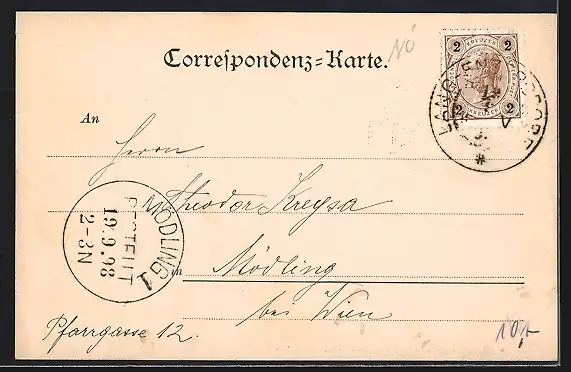 Correſpondenz-Karte.
NÖ
2 KREUZER 2
2 KREUZER 2
LANGENZERSDORF
An
Herrn
Theodor Kreysa
in
Mödling
bei Wien
Pfarrgasse 12.
MÖDLING 1
BESTELLT
19.9.98
2-3N
10,-